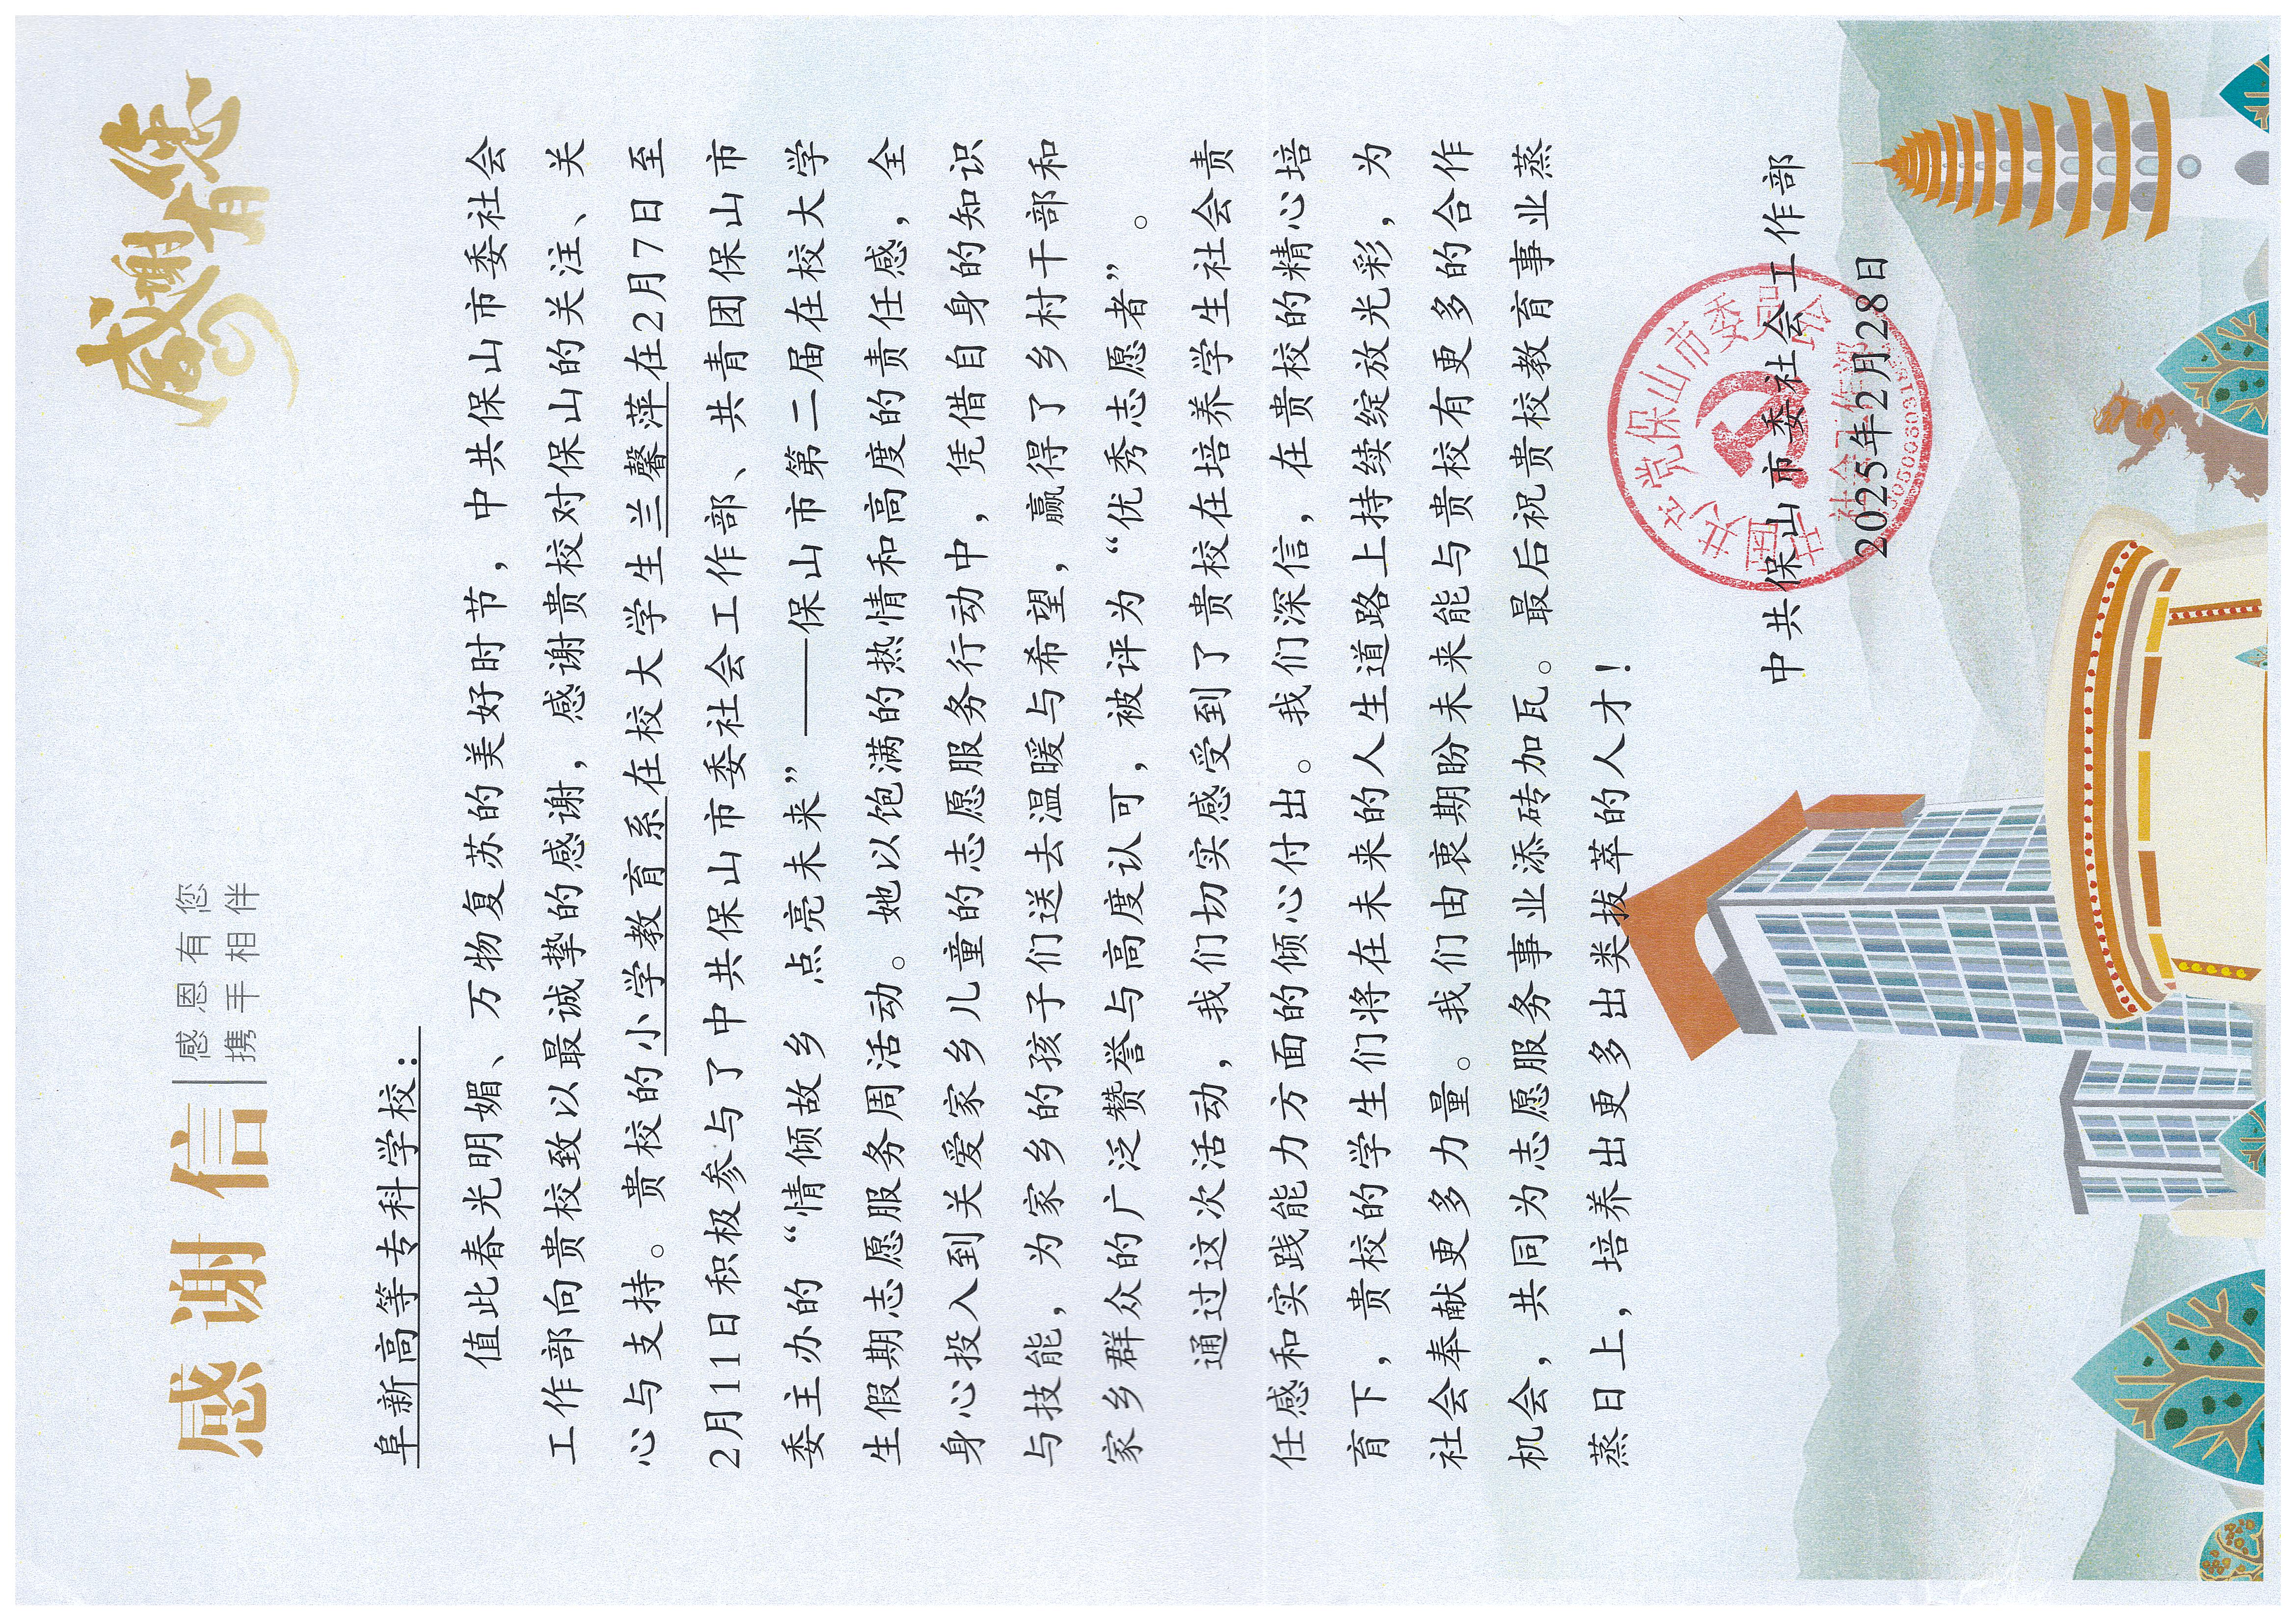 感谢信
感恩有您
携手相伴
感谢有您
阜新高等专科学校：
值此春光明媚、万物复苏的美好时节，中共保山市委社会
工作部向贵校致以最诚挚的感谢，感谢贵校对保山的关注、关
心与支持。贵校的小学教育系在校大学生兰馨萍在2月7日至
2月11日积极参与了中共保山市委社会工作部、共青团保山市
委主办的“情倾故乡 点亮未来”——保山市第二届在校大学
生假期志愿服务周活动。她以饱满的热情和高度的责任感，全
身心投入到关爱家乡儿童的志愿服务行动中，凭借自身的知识
与技能，为家乡的孩子们送去温暖与希望，赢得了乡村干部和
家乡群众的广泛赞誉与高度认可，被评为“优秀志愿者”。
通过这次活动，我们切实感受到了贵校在培养学生社会责
任感和实践能力方面的倾心付出。我们深信，在贵校的精心培
育下，贵校的学生们将在未来的人生道路上持续绽放光彩，为
社会奉献更多力量。我们由衷期盼未来能与贵校有更多的合作
机会，共同为志愿服务事业添砖加瓦。最后祝贵校教育事业蒸
蒸日上，培养出更多出类拔萃的人才！
中共保山市委社会工作部
2025年2月28日